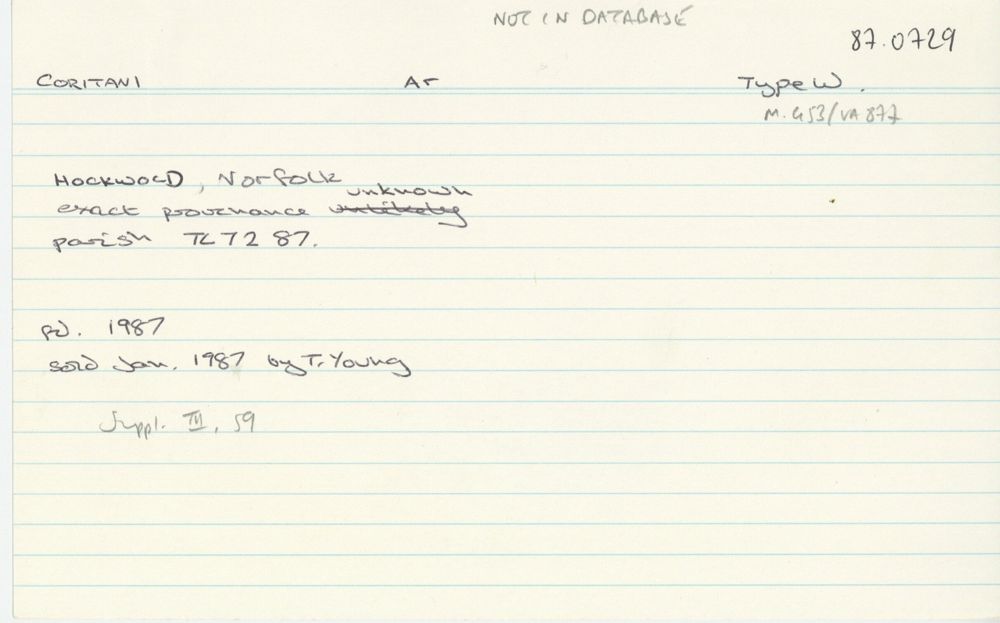 NOT IN DATABASE
87.0729
CORITANI Ar Type W.
M.453/VA 877
HOCKWOLD, Norfolk
unknown
exact provenance unlikely
parish TL 72 87.
fd. 1987
sold Jan. 1987 by T. Young
Suppl. III, 59